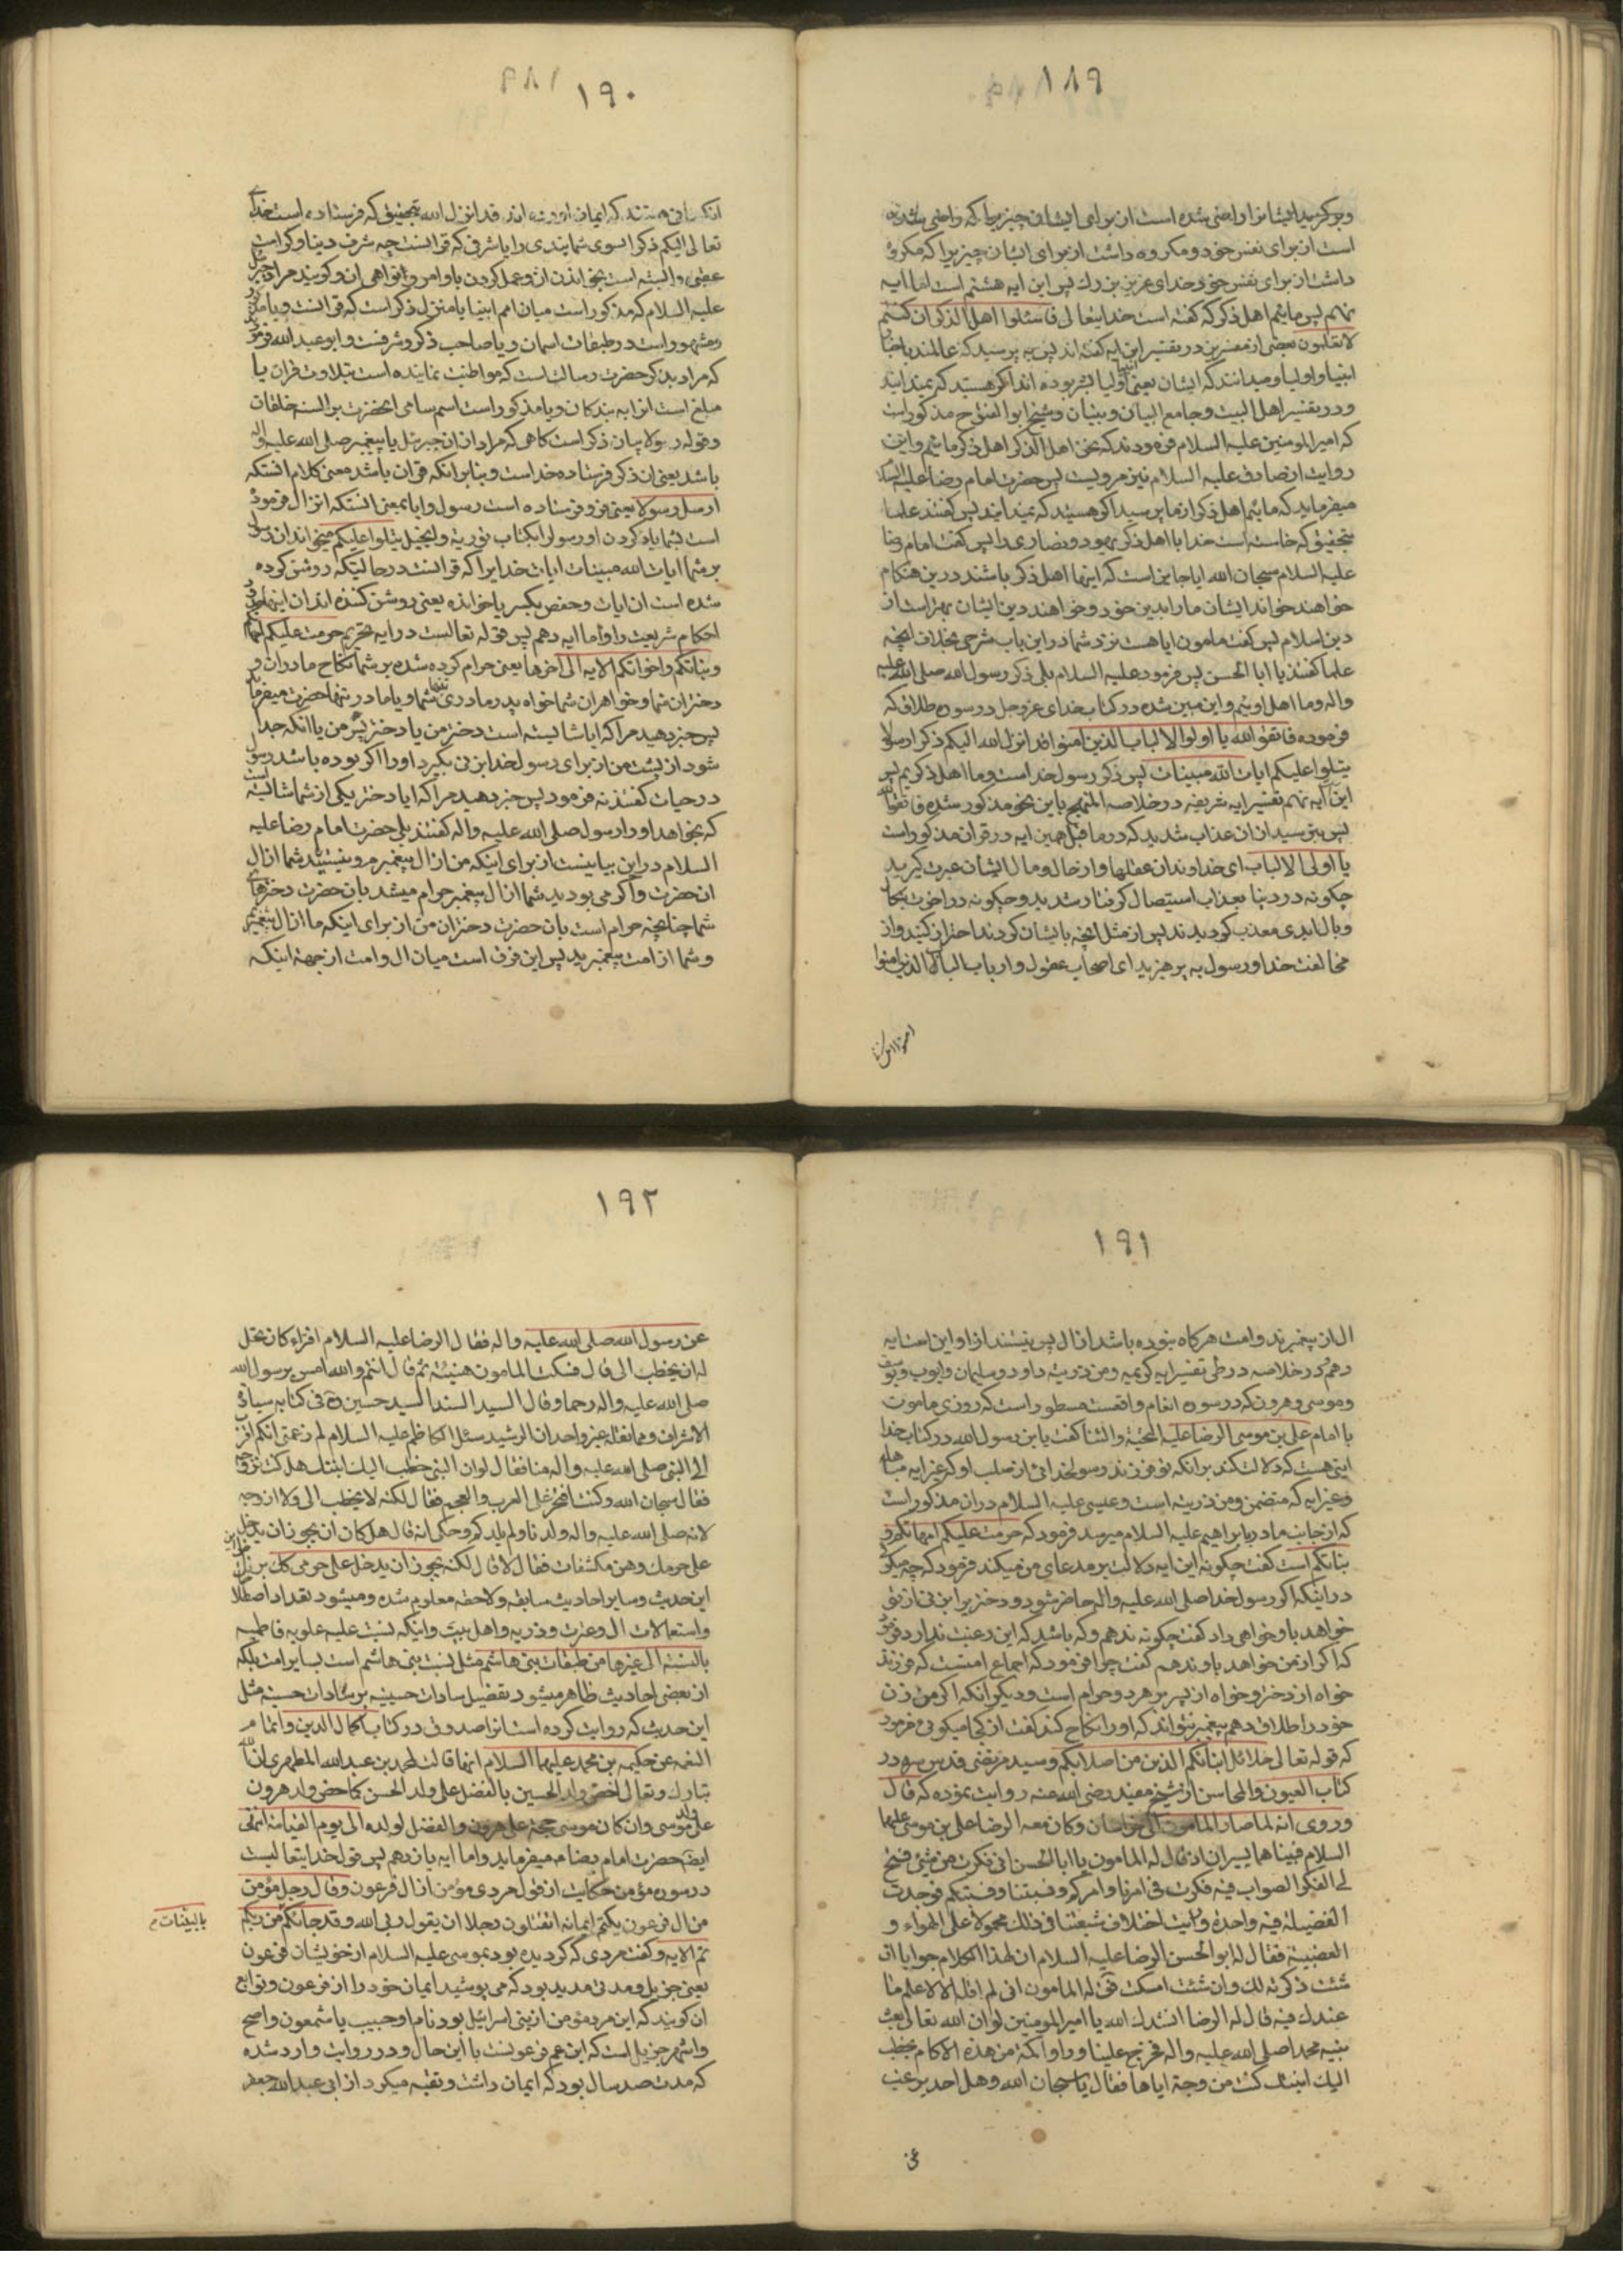 ۱۸۹
وبرگزید ایشانرا و راضی شده است از برای ایشان چیزیرا که راضی شده
است از برای نفس خود و مکروه داشت از برای ایشان چیزیرا که مکروه
داشت از برای نفس خود خدای عزیز بزرك پس این ایه هشتم است اما ایه
نهم پس مائیم اهل ذکر که گفته است خدایتعالی فاسئلوا اهل الذکر ان کنتم
لاتعلمون بعضی از مفسرین در تفسیر این ایه گفته اند پس بپرسید که عالمند باخبار
انبیا و اولیا و میدانند که ایشان یعنی انبیا اولیا بشر بوده اند اگر هستید که نمیدانید
و در تفسیر اهل البیت و جامع البیان و تبیان و شیخ ابوالفتوح مذکور است
که امیرالمومنین علیه السلام فرمودند که نحن اهل الذکر اهل ذکر مائیم و این
روایت از صادق علیه السلام نیز مرویست پس حضرت امام رضا علیه السلام
میفرماید که مائیم اهل ذکر از ما بپرسید اگر هستید که نمیدانید پس گفتند علما
بتحقیق که خاسته است خدا با اهل ذکر یهود و نصاری را پس گفت امام رضا
علیه السلام سبحان الله ایا جایز است که اینها اهل ذکر باشند درین هنگام
خواهند خواند ایشان ما را بدین خود و خواهند دین ایشان بهتر است از
دین اسلام پس گفت مامون ایا هست نزد شما در این باب شرحی بخلاف انچه
علما گفتند یا ابا الحسن پس فرمود علیه السلام بلی ذکر رسول الله صلی الله علیه
واله و ما اهل اوئیم و این مبین شده در کتاب خدای عزوجل در سوره طلاق که
فرموده فاتقوا الله یا اولوا الالباب الذین امنوا قد انزل الله الیکم ذکرا رسولا
یتلوا علیکم ایات الله مبینات پس ذکر رسول خداست و ما اهل ذکریم پس
این ایه نهم تفسیر ایه شریفه در خلاصه المنهج باین نحو مذکور شده فاتقوا الله
پس بترسید از ان عذاب شدید که در ما قبل همین ایه در قران مذکور است
یا اولی الالباب ای خداوندان عقلها و از حال و مال ایشان عبرت گیرید
چگونه در دنیا بعذاب استیصال گرفتار شدید و چگونه در اخرت بنکال
و بال ابدی معذب گردیدند پس از مثل انچه بایشان کردند احتراز کنید و از
مخالفت خدا و رسول به پرهیزید ای اصحاب عقول و ارباب الباب الذین امنوا
۱۹۰
انکسانی هستند که ایمان اورده اند قد انزل الله بتحقیق که فرستاده است خدای
تعالی الیکم ذکرا بسوی شما پندی را یا شرفی که قرانست چه شرف دنیا و کرامت
عقبی وابسته است بخواندن ان و عمل کردن باوامر و نواهی ان و گویند مراد جبرئیل
علیه السلام که مذکور است میان امم انبیا یا منزل ذکر است که قرانست و یا مذکور
و مشهور است در طبقات اسمان و یا صاحب ذکر و شرفست و ابوعبدالله فرموده
که مراد بذکر حضرت رسالت است که مواظبت نماینده است بتلاوت قران یا
مبلغ است انرا به بندگان و یا مذکور است اسم سامی انحضرت بر السنه خلقان
وقوله رسولا بیان ذکر است گاهی که مراد از ان جبرئیل یا پیغمبر صلی الله علیه واله
باشد یعنی ان ذکر فرستاده خداست و بنابرانکه قران باشد معنی کلام انستکه
ارسل رسولا یعنی و فرستاده است رسول را یا بمعنی انستکه انزال فرموده
است بشما یاد کردن او رسولرا بکتاب توریة و انجیل یتلوا علیکم میخواند ان رسول
بر شما ایات الله مبینات ایات خدایرا که قرانست در حالتیکه روشن کرده
شده است ان ایات و حفص بکسر یا خوانده یعنی روشن کننده اند ان اینها
احکام شریعت را و اما ایه دهم پس قوله تعالیست در ایه تحریم حرمت علیکم امهاتکم
و بناتکم و اخواتکم الایه الی اخرها یعنی حرام کرده شده بر شما نکاح مادران و
دختران شما و خواهران شما خواه پدر و مادری شما و یا مادر تنها حضرت میفرماید
پس خبر دهید مرا که ایا شایسته است دختر من یا دختر پسر من یا انکه جدا
شود از پشت من از برای رسول خدا بزنی بگیرد او را اگر بوده باشد رسول
در حیات گفتند نه فرمود پس خبر دهید مرا که ایا دختر یکی از شما شایسته است
که بخواهد او را رسول صلی الله علیه واله گفتند بلی حضرت امام رضا علیه
السلام در این بیانیست از برای اینکه من از ال پیغمبرم و نیستید شما از ال
ان حضرت و اگر می بودید شما از ال پیغمبر حرام میشد بان حضرت دخترهای
شما چنانچه حرام است بان حضرت دختران من از برای اینکه ما از ال پیغمبریم
و شما از امت پیغمبرید پس این فرق است میان ال و امت از جهة اینکه
۱۹۱
ال از پیغمبرند و امت هرگاه نبوده باشد از ال پس نیستند از او این است ایه
دهم و در خلاصه در طی تفسیر ایه کریمه ومن ذریته داود و سلیمان و ایوب و یوسف
و موسی و هرون که در سوره انعام واقعست مسطور است که روزی مامون
با امام علی بن موسی الرضا علیه التحیة والثنا گفت یا بن رسول الله در کتاب خدا
ایتی هست که دلالت کند بر انکه تو فرزند رسول خدائی از صلب او که غیر ایه مباهله
و غیر ایه که متضمن ومن ذریته است و عیسی علیه السلام در ان مذکور است
که از جانب مادر بابراهیم علیه السلام میرسد فرمود که حرمت علیکم امهاتکم و
بناتکم است گفت چگونه این ایه دلالت بر مدعای من میکند فرمود که چه میگوئی
در اینکه اگر رسول خدا صلی الله علیه واله حاضر شود و دختر بر این زنی از تو
خواهد باو خواهی داد گفت چگونه ندهم و که باشد که این رغبت ندارد فرمود
که اگر از من خواهد باو ندهم گفت چرا فرمود که اجماع امتست که فرزند
خواه از دختر و خواه از پسر بر مرد حرام است و دیگر انکه اگر من زن
خود را طلاق دهم پیغمبر نتواند که او را نکاح کند گفت از کجا میگوئی فرمود
که قوله تعالی حلائل ابنائکم الذین من اصلابکم و سید مرتضی قدس سره در
کتاب العیون والمحاسن از شیخ مفید رضی الله عنه روایت نموده که قال
وروی انه لما صار المامون الی خراسان وکان معه الرضا علی بن موسی علیهما
السلام فبینا هما یسیران اذ قال له المامون یا ابا الحسن انی فکرت فی شئ فنتج
لی الفکر الصواب فیه فکرت فی امرنا وامرکم ونسبتنا ونسبتکم فوجدت
الفضیلة فیه واحدة ورایت اختلاف شیعتنا فی ذلك محمولا علی الهواء و
العصبیة فقال له ابو الحسن الرضا علیه السلام ان لهذا الکلام جوابا ان
شئت ذکرته لك وان شئت امسکت فقال له المامون انی لم اقله الا لاعلم ما
عندك فیه قال له الرضا انشدك الله یا امیر المومنین لو ان الله تعالی بعث
نبیه محمدا صلی الله علیه واله فخرج علینا من وراء اکمة من هذه الاکام یخطب
الیك ابنتك کنت مزوجه ایاها فقال یا سبحان الله وهل احد یرغب
عن
۱۹۲
عن رسول الله صلی الله علیه واله فقال الرضا علیه السلام افتراه کان یحل
له ان یخطب الی قال فسکت المامون هنیئة ثم قال انتم والله امس برسول الله
صلی الله علیه واله رحما وقال السید السند السید حسین ره فی کتابه سیادة
الاشراف ومما نقله غیر واحد ان الرشید سئل الکاظم علیه السلام لم زعمتم انکم اقرب
الی النبی صلی الله علیه واله منا فقال لو ان النبی خطب الیك ابنتك هل کنت تزوجه
فقال سبحان الله وکنت افتخر علی العرب والعجم فقال لکنه لا یخطب الی ولا ازوجه
لانه صلی الله علیه واله ولدنا ولم یلدکم وحکی انه قال هل کان ان یجوز ان یدخل
علی حرمك وهن مکشفات فقال لا قال لکنه یجوز ان یدخل علی حرمی کذلك
این حدیث و سایر احادیث سابقه و لاحقه معلوم شده و میشود تعداد اصطلاح
و استعمالات ال و عترت و ذریه و اهل بیت و اینکه نسبت علیه علویه فاطمیه
بالنسبه الی غیرها من طبقات بنی هاشم مثل نسبت بنی هاشم است بسایر امت بلکه
از بعضی احادیث ظاهر میشود تفضیل سادات حسینیه بر سادات حسنیه مثل
این حدیث که روایت کرده است انرا صدوق در کتاب اکمال الدین واتمام
النعمه عن حکیمه بنت محمد علیهما السلام انها قالت لمحمد بن عبدالله المطهری ان الله
تبارك وتعالی خص ولد الحسین بالفضل علی ولد الحسن کما خص ولد هرون
علی ولد موسی وان کان موسی حجة علی هرون والفضل لولده الی یوم القیامة انتهی
ایضا حضرت امام رضا ع میفرماید و اما ایه یازدهم پس قول خدایتعالیست
در سوره مؤمن حکایت از قول مردی مؤمن از ال فرعون وقال رجل مؤمن
من ال فرعون یکتم ایمانه اتقتلون رجلا ان یقول ربی الله وقد جائکم من ربکم
بالبینات م
تم الایه و گفت مردی که گرویده بود بموسی علیه السلام از خویشان فرعون
یعنی حزبیل و مدتی مدید بود که می پوشید ایمان خود را از فرعون و توابع
ان گویند که این مرد مؤمن از بنی اسرائیل بود نام او حبیب یا شمعون و اصح
و اشهر حزبیل است که ابن عم فرعونست با این حال و در روایت وارد شده
که مدت صد سال بود که ایمان داشت و تقیه میکرد از ابی عبدالله جعفر